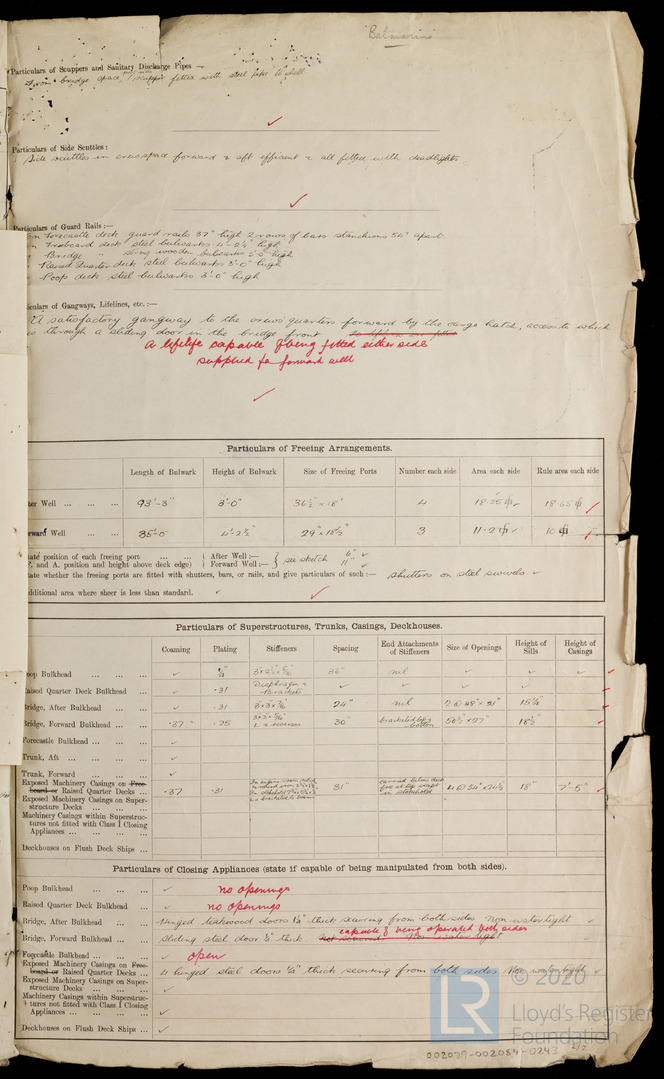 "Balmarino"
Particulars of Scuppers and Sanitary Discharge Pipes —
From bridge space, scupper fitted with steel pipe to shell
Particulars of Side Scuttles :
Side scuttles in crew space forward & aft efficient & all fitted with deadlights.
Particulars of Guard Rails :—
On Forecastle deck guard rails 37" high 2 rows of bars stanchions 54" apart
Freeboard deck steel bulwarks 4'-2½" high
Bridge " strong wooden bulwarks 3'-0" high
Raised Quarter deck steel bulwarks 3'-0" high
Poop deck steel bulwarks 3'-0" high
iculars of Gangways, Lifelines, etc. :—
A satisfactory gangway to the crews' quarters forward by the cargo hatch, access to which
is through a sliding door in the bridge front
A lifelife capable of being fitted either side
supplied for forward well
Particulars of Freeing Arrangements.
Length of Bulwark Height of Bulwark Size of Freeing Ports Number each side Area each side Rule area each side
ter Well ... ... ... 93'-3" 3'-0" 36½" × 18" 4 18.25 18.65
rward Well ... ... 35'-0 4'-2½" 29" × 18½" 3 11.2 10
tate position of each freeing port ... ... After Well :— see sketch 6"
F. and A. position and height above deck edge) Forward Well :— 11"
tate whether the freeing ports are fitted with shutters, bars, or rails, and give particulars of each :— shutters on steel swivels
dditional area where sheer is less than standard.
Particulars of Superstructures, Trunks, Casings, Deckhouses.
Coaming Plating Stiffeners Spacing End Attachments of Stiffeners Size of Openings Height of Sills Height of Casings
oop Bulkhead ... ... ... 36" nil
aised Quarter Deck Bulkhead ... .31 Diaphragm & Brackets
ridge, After Bulkhead ... ... .31 24" nil 2 @ 48" × 21" 15¼"
ridge, Forward Bulkhead ... ... .37" .25 30" bracketed top & bottom 50½" × 27" 18½"
orecastle Bulkhead ... ... ...
Trunk, Aft ... ... ...
Trunk, Forward ... ... ...
Exposed Machinery Casings on Free-
board or Raised Quarter Decks ... .37 .31 31" 4 @ 54" × 24½" 18" 7'-5"
Exposed Machinery Casings on Super-
structure Decks ... ... ...
Machinery Casings within Superstruc-
tures not fitted with Class I Closing
Appliances ... ... ... ...
Deckhouses on Flush Deck Ships ...
Particulars of Closing Appliances (state if capable of being manipulated from both sides).
Poop Bulkhead ... ... ... no openings
Raised Quarter Deck Bulkhead ... no openings
Bridge, After Bulkhead ... ... Hinged teakwood doors 1¾" thick securing from both sides Non watertight
capable of being operated both sides
Bridge, Forward Bulkhead ... ... sliding steel door ½" thick Not secured Non water tight
Forecastle Bulkhead ... ... ... open
Exposed Machinery Casings on Free-
board or Raised Quarter Decks ... 4 hinged steel doors ¼" thick securing from both sides Non watertight
Exposed Machinery Casings on Super-
structure Decks ... ... ...
Machinery Casings within Superstruc-
tures not fitted with Class I Closing
Appliances ... ... ... ...
Deckhouses on Flush Deck Ships ...
© 2020
LR
Lloyd's Register
Foundation
002079-002084-0243 2/2